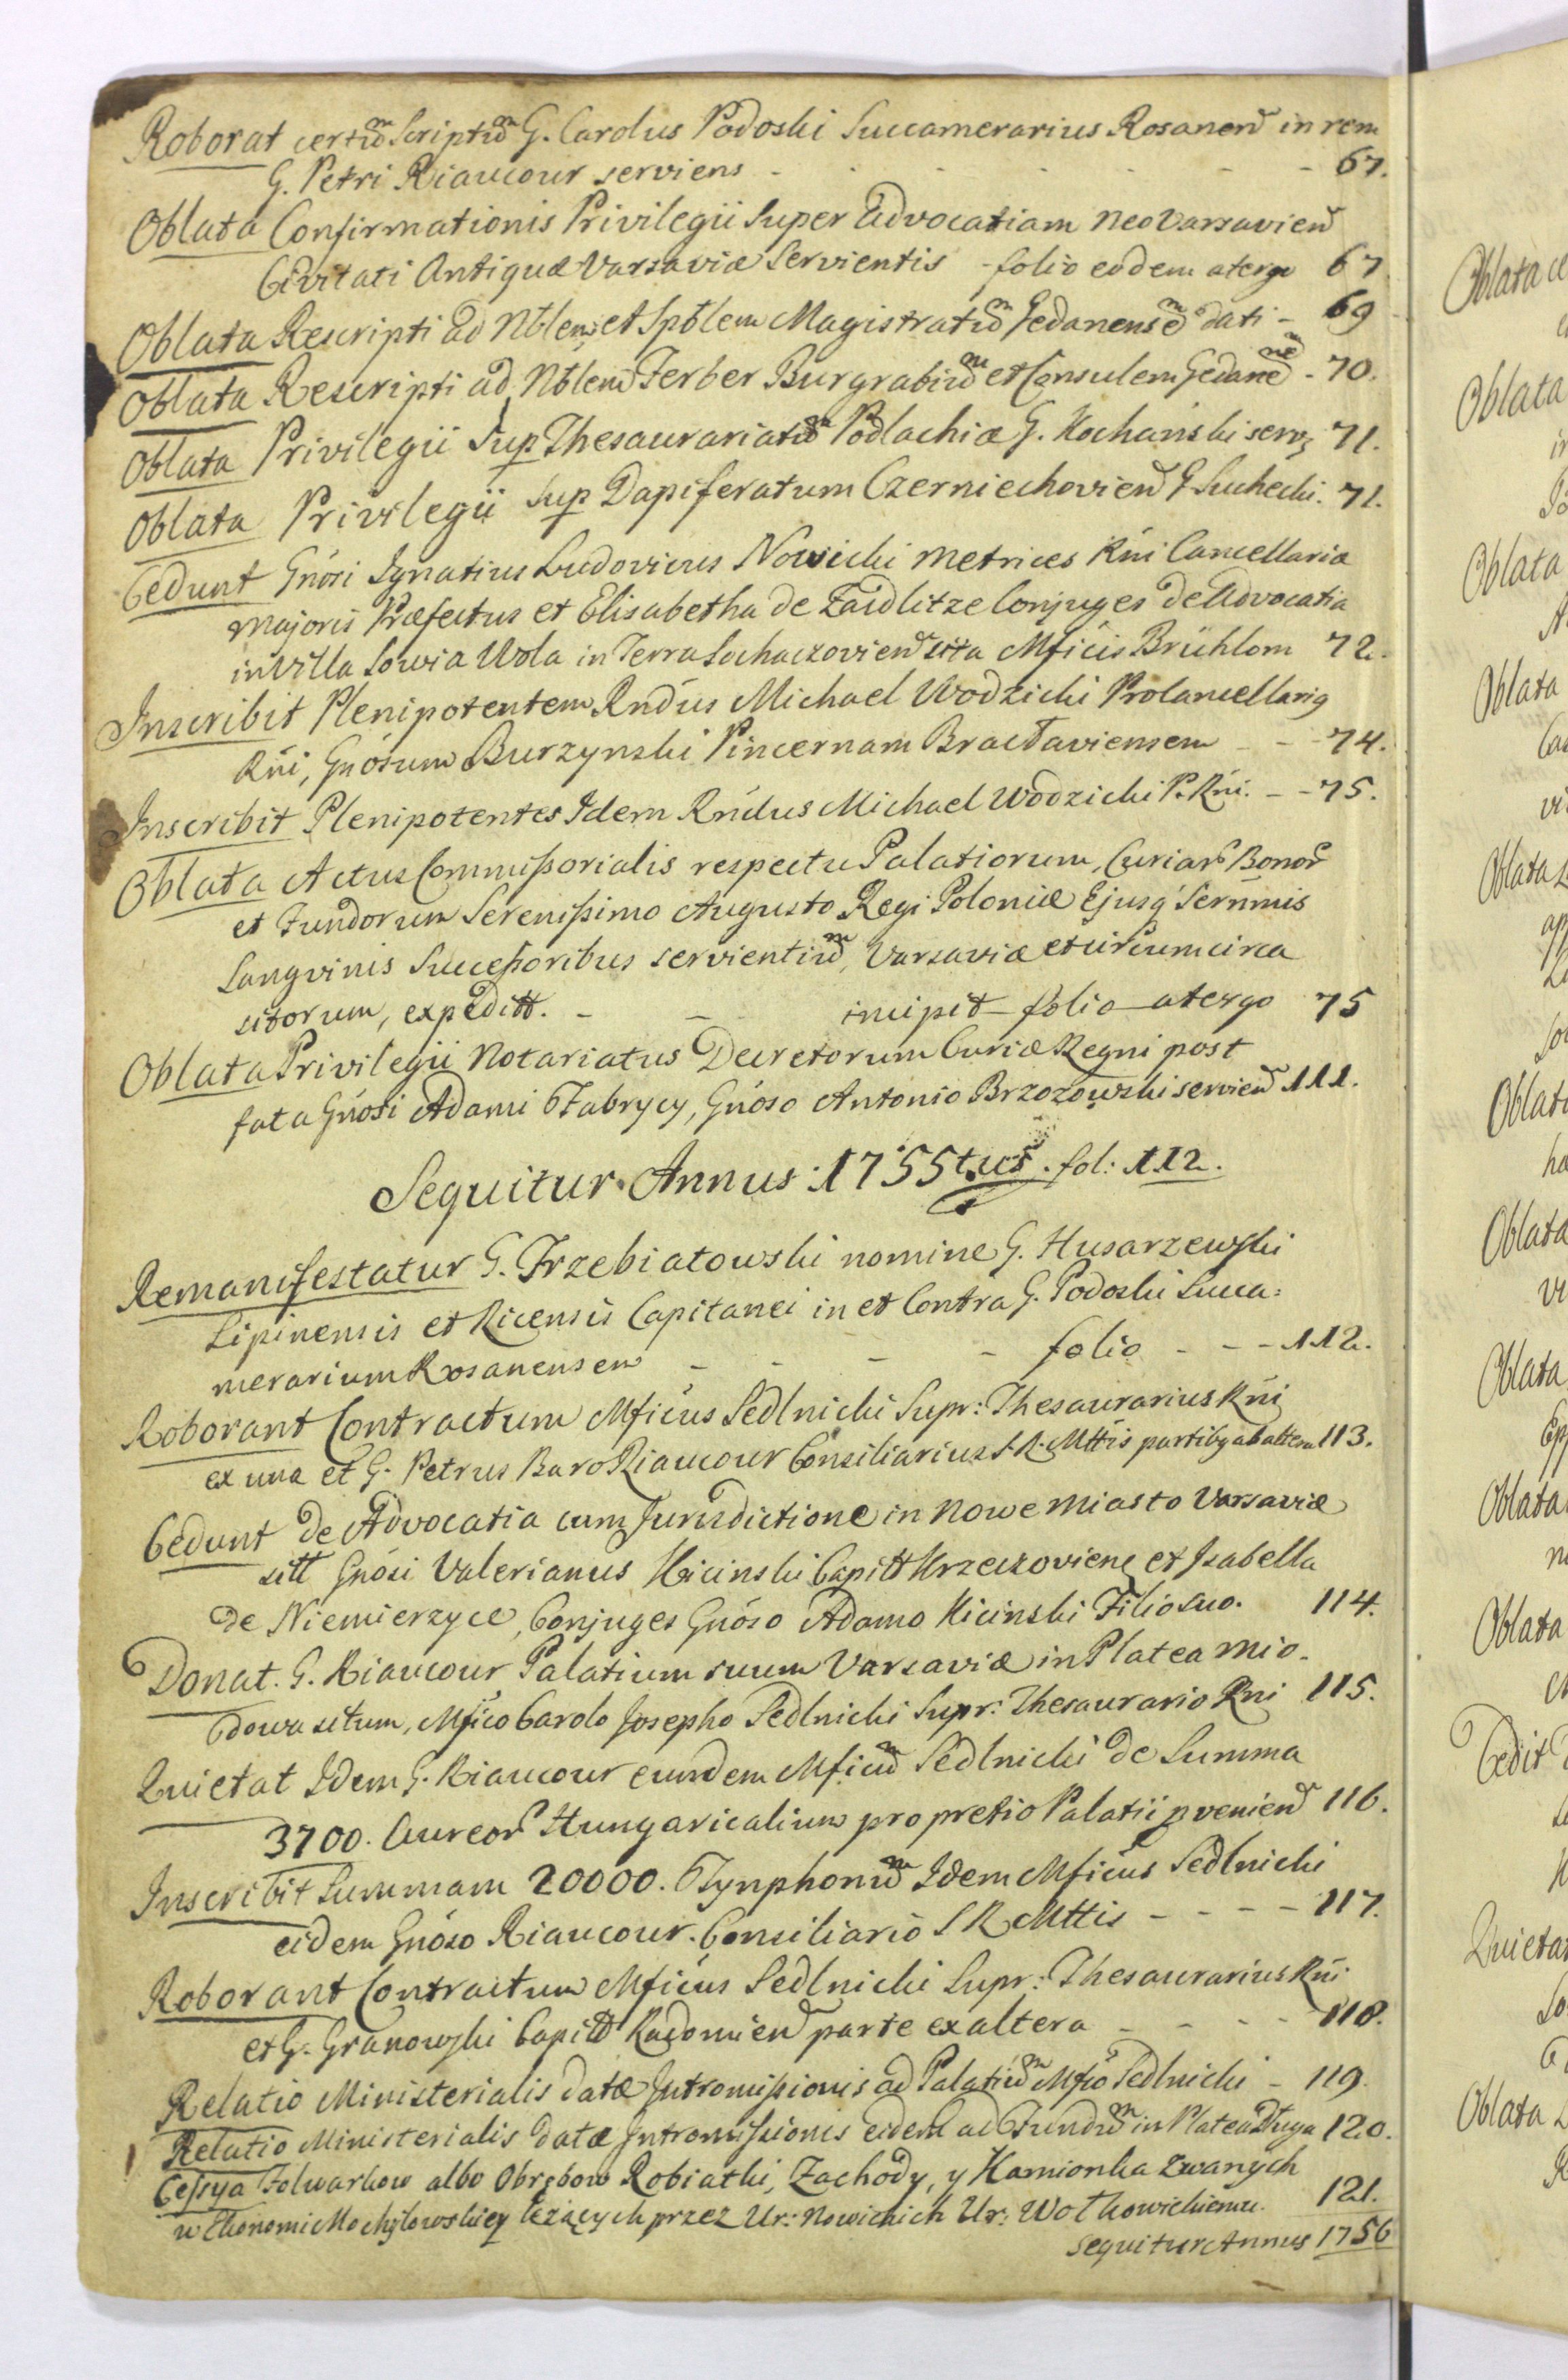 Roborat certũ Scriptũ G. Carolus Podoski Succamerarius Rosanen̄ in rem
G. Petri Riaucour serviens - - - 67.
Oblata Confirmationis Privilegii Super Advocatiam Neovarsavien̄
Civitati Antiquæ Varsaviæ Servientis - folio eodem atergo 67
Oblata Rescripti ad Nblem et Spblem Magistratũ Gedanensẽ dati - 69
Oblata Rescripti ad Nblem Ferber Burgrabiũ et Consulem Gedanẽ - 70.
Oblata Privilegii Sup Thesaurariatũ Podlachiæ G. Kochański serv; 71.
Oblata Privilegii Sup Dapiferatum Czerniechovien̄ G Suchecki. 71.
Cedunt Gnósi Ignatius Ludovicus Nowicki Metrices Rńi Cancellariæ
Majoris Præfectus et Elisabetha de Zaidlitze Conjuges de Advocatia
in Villa Sowia Wola in Terra Sochaczovien̄ sita Mficis Brühlom 72.
Inscribit Plenipotentem Rndús Michael Wodzicki Procancellarig
Rńi, Gnósum Burzynski Pincernam Bracłaviensem - - 74.
Inscribit Plenipotentes Idem Rńdus Michael Wodzicki P. Rńi. - - 75.
Oblata Actus Commissorialis respectu Palatiorum, Curiar̄ Bonor̄
et Fundorum Serenissimo Augusto Regi Poloniæ Ejusq́ Serńmis
Sangvinis Successoribus servientiũ, Varsaviæ et circumcirca
sitorum, expeditt. - - incipit folio atergo 75
Oblata Privilegii Notariatus Decretorum Curiæ Regni post
fata Gnósi Adami Fabrycy, Gnóso Antonio Brzozowski servien̄ 111.
Sequitur Annus: 1755tus. fol: 112.
Remanifestatur G. Trzebiatowski nomine G. Husarzewski
Lipinensis et Ricensis Capitanei in et Contra G. Podoski Succa:
merarium Rosanensem - - - - folio - - - 112.
Roborant Contractum Mficús Sedlnicki Supr: Thesaurarius Rńi
ex una et G. Petrus Baro Riaucour Consiliarius S. R. Mttis partibg ab altera 113.
Cedunt de Advocatia cum Jurisdictione in Nowe Miasto Varsaviæ
sitt Gnósi Valerianus Kicinski Capitt Krzeczoviens et Isabella
de Niemierzyce, Conjuges Gnóso Adamo Kicinski Filio suo. 114.
Donat. G. Riaucour Palatium suum Varsaviæ in Platea Mio-
dowa situm, Mfico Carolo Josepho Sedlnicki Supr: Thesaurario Rńi 115.
Quietat Idem G. Riaucour eundem Mficũ Sedlnicki de Summa
3700. Aureor̄ Hungaricalium pro pretio Palatii pvenien̄ 116.
Inscribit Summam 20000. Tynphonũ Idem Mficús Sedlnicki
eidem Gnóso Riaucour. Consiliario S R Mttis - - - - 117.
Roborant Contractum Mficús Sedlnicki Supr: Thesaurarius Rńi
et G. Granowski Capitt Radomien̄ parte ex altera - - - - 118.
Relatio Ministerialis datæ Intromissionis ad Palatiũ Mfci Sedlnicki - 119.
Relatio Ministerialis datæ Intromissionis eidem ad Fundũ in Platea Długa 120.
Cessya Folwarkow albo Obrębow Robiatki, Zachody, y Kamionka zwanych
w Ekonomii Mochylowskiey leżących przez Ur: Nowickich Ur: Wołkowickiemu. 121.
sequitur Annus 1756